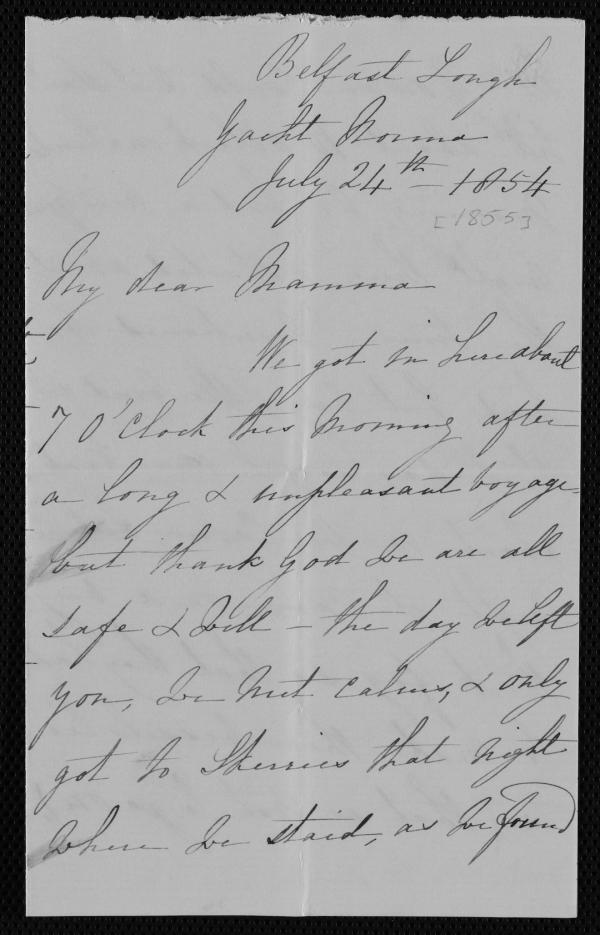 Belfast Lough
Yacht Norma
July 24th - 1854
[1855]
My dear Mamma
We got in here about
7 O'Clock this Morning after
a long & unpleasant Voyage,
but thank God we are all
safe & Well - the day we left
you, we met calms, & only
got to Skerries that night
where we staid, as we found